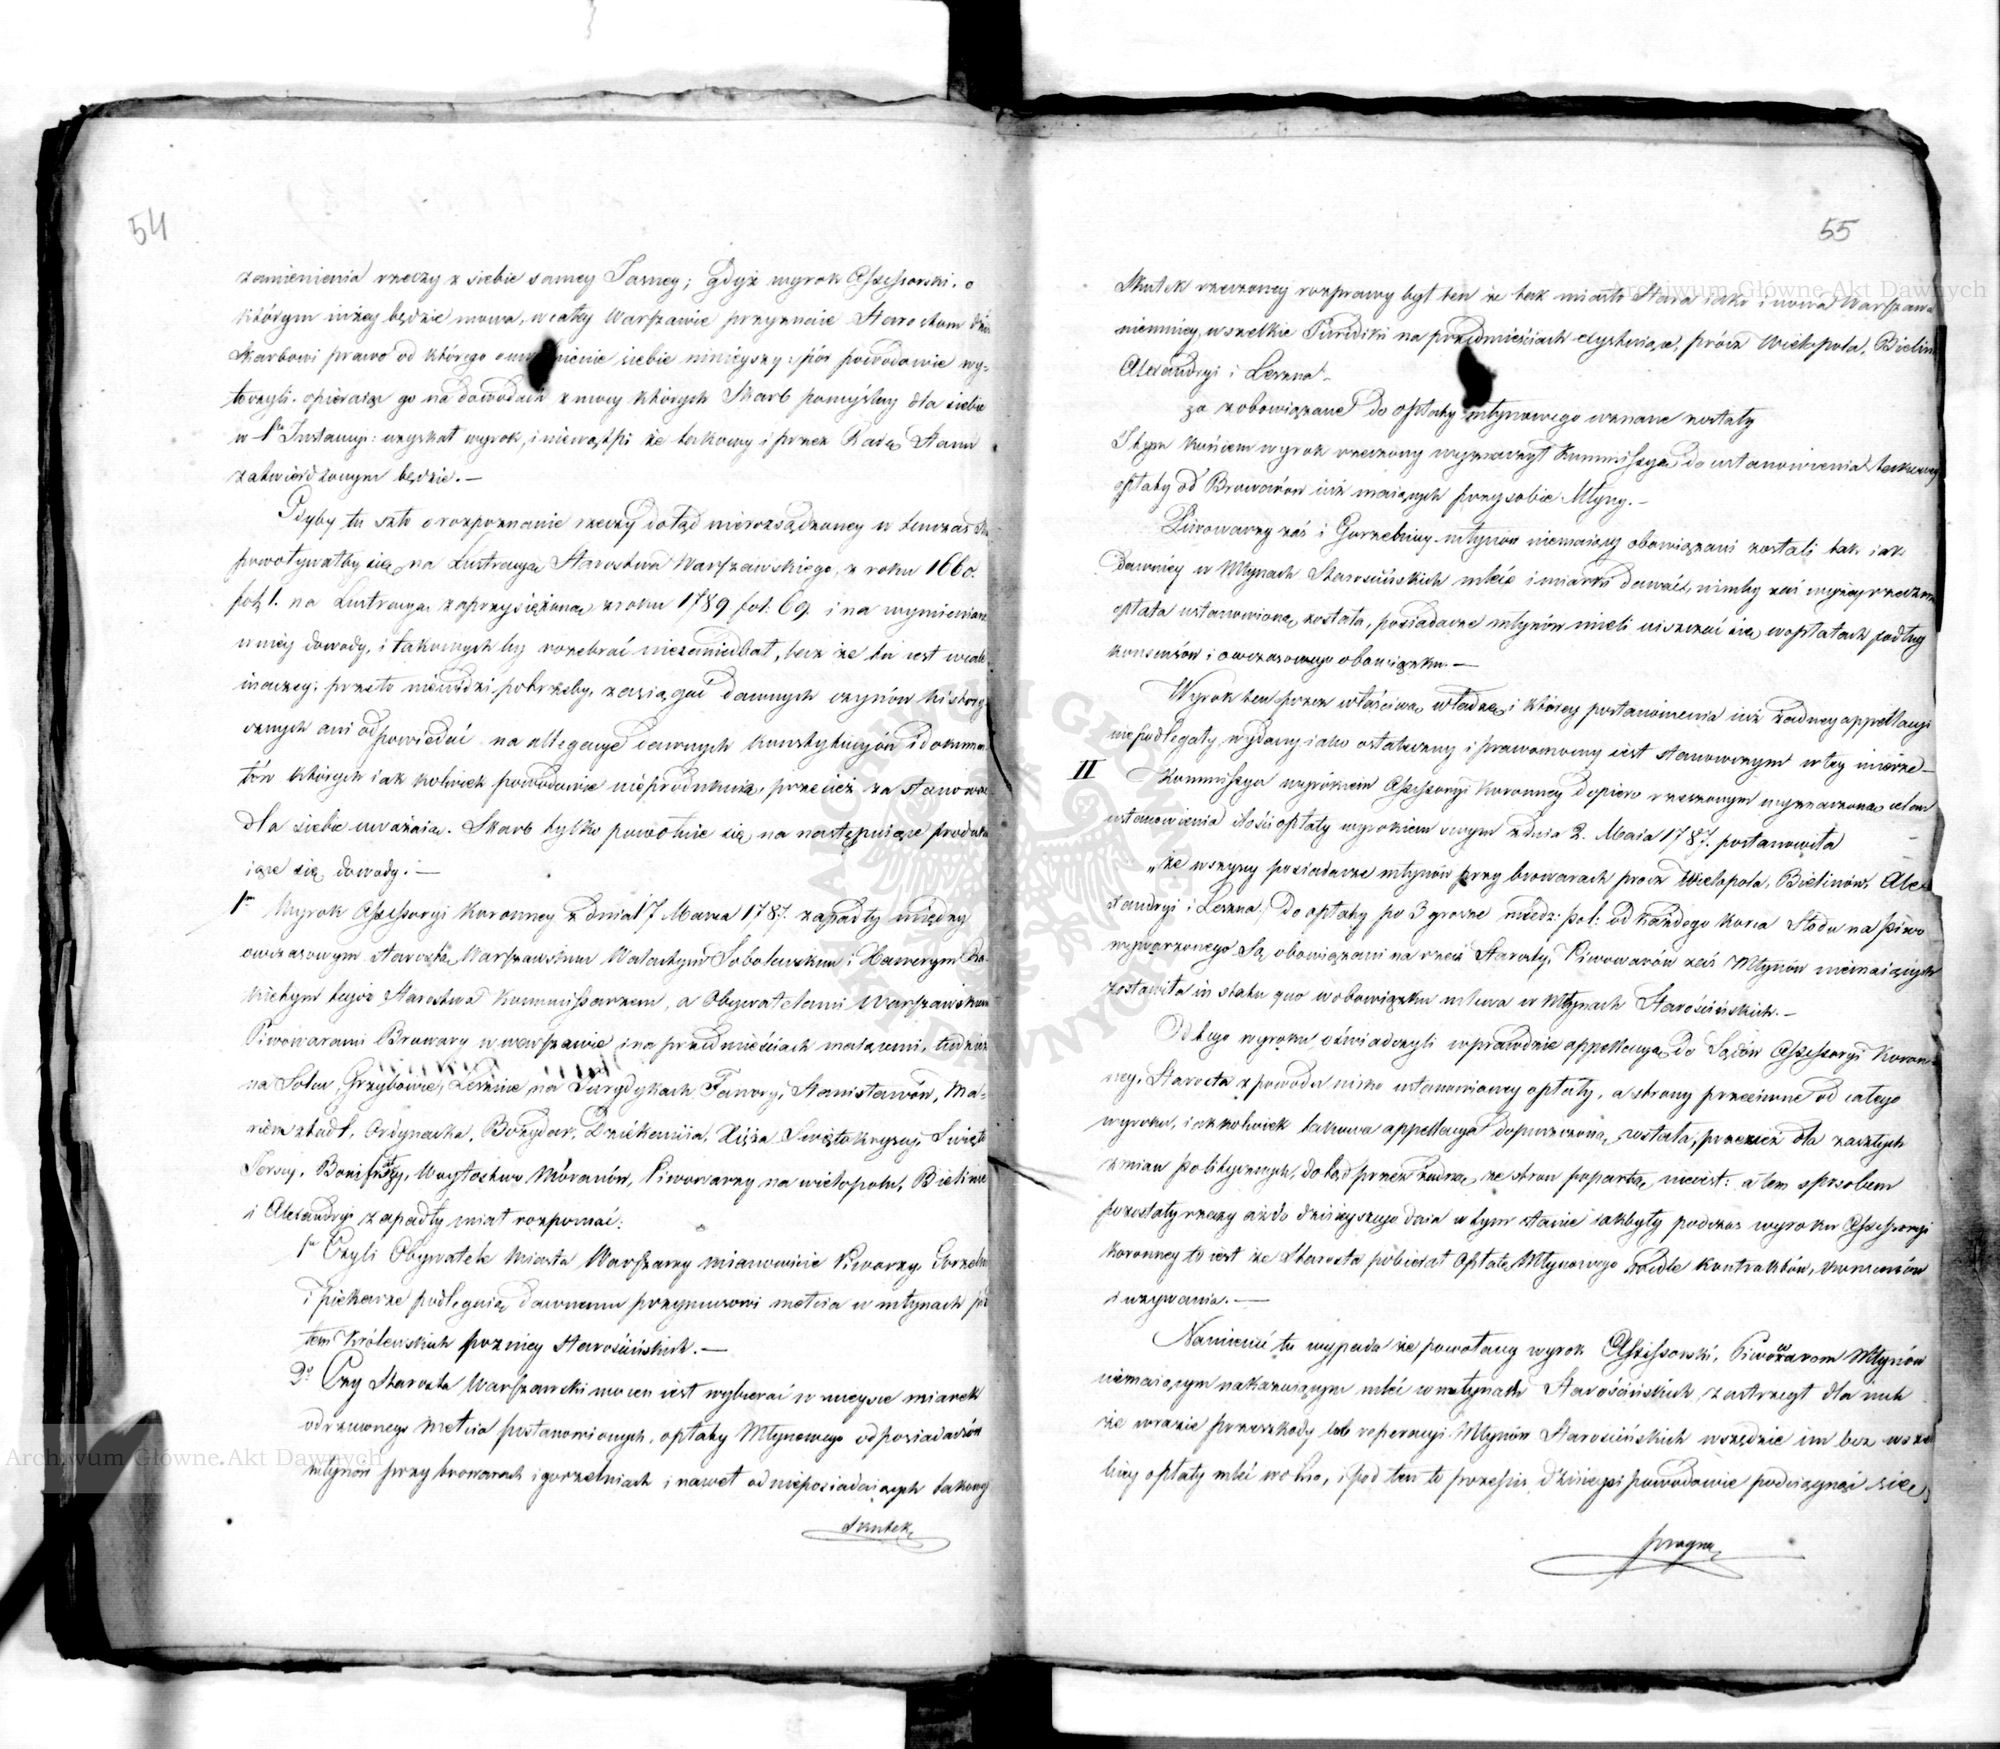 54
zamienienia rzeczy z siebie samey Jasney; gdyż wyrok Assessorski, o
którym niżey będzie mowa, w całey Warszawie przyznaie Starostom dziś
Skarbowi prawo od którego siebie ninieyszy spór powodowie wy-
toczyli, opieraiąc go na dowodach z mocy których Skarb pomyślny dla siebie
w 1éy Instancyi uzyskał wyrok, i niewątpi że takowy i przez Radę Stanu
zatwierdzonym będzie. —
Gdyby tu szło o rozpoznanie rzeczy dotąd nierozsądzoney w tenczas
powoływałby się na Lustracyą Starostwa Warszawskiego z roku 1660.
fol. 1. na Lustracyą zaprzysiężoną z roku 1789 fol: 69. i na wymienione
w niey dowody, i takowych by rozebrać niezaniedbał, lecz że tu iest wcale
inaczey; przeto niewidzi potrzeby, zasiągać dawnych czynów history-
cznych ani odpowiedać na allegacye dawnych konstytucyów i dokumen-
tów których iak kolwiek powodowie nieprodukuią, przecież za stanowcze
dla siebie uważaią. Skarb tylko powołuie się na następuiące produku-
iące się dowody. —
1mo Wyrok Assessoryi Koronney z dnia 17 Marca 1787. zapadły między
owczasowym Starostą Warszawskim Walentym Sobolewskim i Xawerym
tegoż Starostwa Kommissarzem, a Obywatelami Warszawskiemi
Piwowarami Browary w Warszawie i na przedmieściach maiącemi, tudzież
na Solcu, Grzybowie, Lesznie, na Jurydykach Fawory, Stanisławów, Ma-
riensztadt, Ordynacka, Bożydar, Dziekania, Xięża Swiętokrzyscy, Swięto
Jerscy, Bonifratrzy, Woytostwo Muranów, Piwowarzy na wielopolu, Bielinie
i Alexandryi zapadły miał rozpoznać:
1o Czyli Obywatele Miasta Warszawy mianowicie Piworzy Gorzelni
i piekarze podlegaią dawnemu przymusowi mełcia w młynach po-
tem Królewskich pozniey Starościńskich. —
2o Czy Starosta Warszawski mocen iest wybierać w mieysce miarek
od rzeczonego mełcia postanowionych, opłaty Młynowego od posiadaczów
młynów przy browarach i gorzelniach i nawet od nieposiadaiących takowy
Skutek
55
Skutek rzeczoney rozprawy był ten że tak miasto Stara iako i nowa Warszawa
niemniey, wszelkie Juridiki na przedmieściach exystuiące, prócz Wielopola, Bielina
Alexandryi i Leszna —
za zobowiązane do opłaty młynowego uznane zostały
I tym końcem wyrok rzeczony wyznaczył Kommissyą do ustanowienia takowey
opłaty od Browarów iuż maiących przy sobie Młyny. —
Piwowarzy zaś i Gorzelnicy młynów niemaiący obowiązani zostali tak iak
dawniey w Młynach Starościńskich mleć i miarki dawać, nimby zaś wyżey rzeczona
opłata ustanowioną została, posiadacze młynów mieli uiszczać się w opłatach podług
konsensów i owczasowego obowiązku. —
Wyrok ten przez właściwą władzę, i którey postanowienia iuż żadney appellacyi
niepodlegały, wydany iako ostateczny i prawomocny iest stanowczym w tey mierze —
II Kommissya wyrokiem Assessoryi Koronney dopiero rzeczonym wyznaczona celem
ustanowienia ilości opłaty wyrokiem swym z dnia 2. Maia 1787. postanowiła
„że wszyscy posiadacze młynów przy browarach prócz Wielopola, Bielinów, Alex-
andryi i Leszna, do opłaty po 3 grosze miedz: pol: od każdego korca Słodu na piwo
wywarzonego są obowiązani na rzecz Starosty, Piwowarów zaś Młynów niemaiących
zostawiła in statu quo w obowiązku mlewa w Młynach Starościńskich. —
Od tego wyroku oświadczyli wprawdzie appellacyą do Sądów Assessoryi Koron-
ney, Starosta z powodu nisko ustanowioney opłaty, a strony przeciwne od całego
wyroku, iak kolwiek takowa appellacya dopuszczona, została, przecież dla zaszłych
zmian politycznych, dotąd przez żadną ze stron popartą nieiest: a tem sposobem
pozostały rzeczy aż do dzisieyszego dnia w tym stanie iak były podczas wyroku Assessoryi
Koronney to iest że Starosta pobierał Opłatę Młynowego wedle Kontraktów, konsensów
i używania. —
Namienić tu wypada że powołany wyrok Assessorski, Piwowarom Młynów
niemaiącym nakazuiącym mleć w młynach Starościńskich, zastrzegł dla nich
że w razie przeszkody lub reperacyi Młynów Starościńskich wszędzie im bez wszel-
kiey opłaty mleć wolno, i pod ten to przepis dzisieysi powodowie podciągnąć się
pragną
Archiwum Główne Akt Dawnych